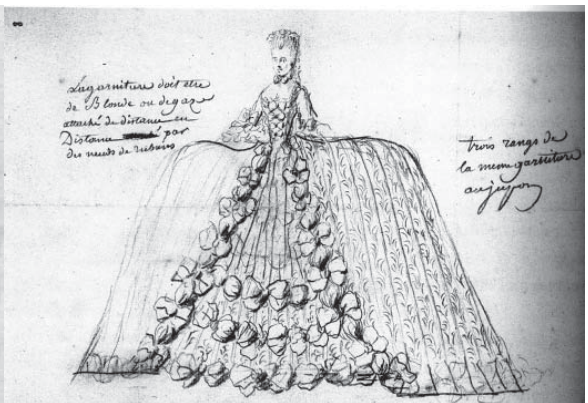 La garniture doit etre
de Blonde ou de gaze
attaché de distance en
Distance par
des nœuds de rubans
trois rangs de
la meme garniture
au jupon